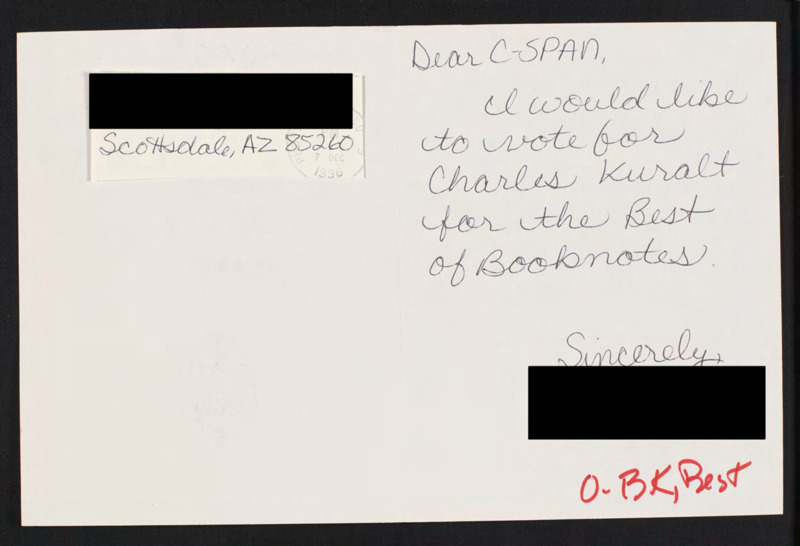 Scottsdale, AZ 85260
7 DEC
1996
Dear C-SPAN,
I would like
to vote for
Charles Kuralt
for the Best
of Booknotes.
Sincerely,
O-BK, Best